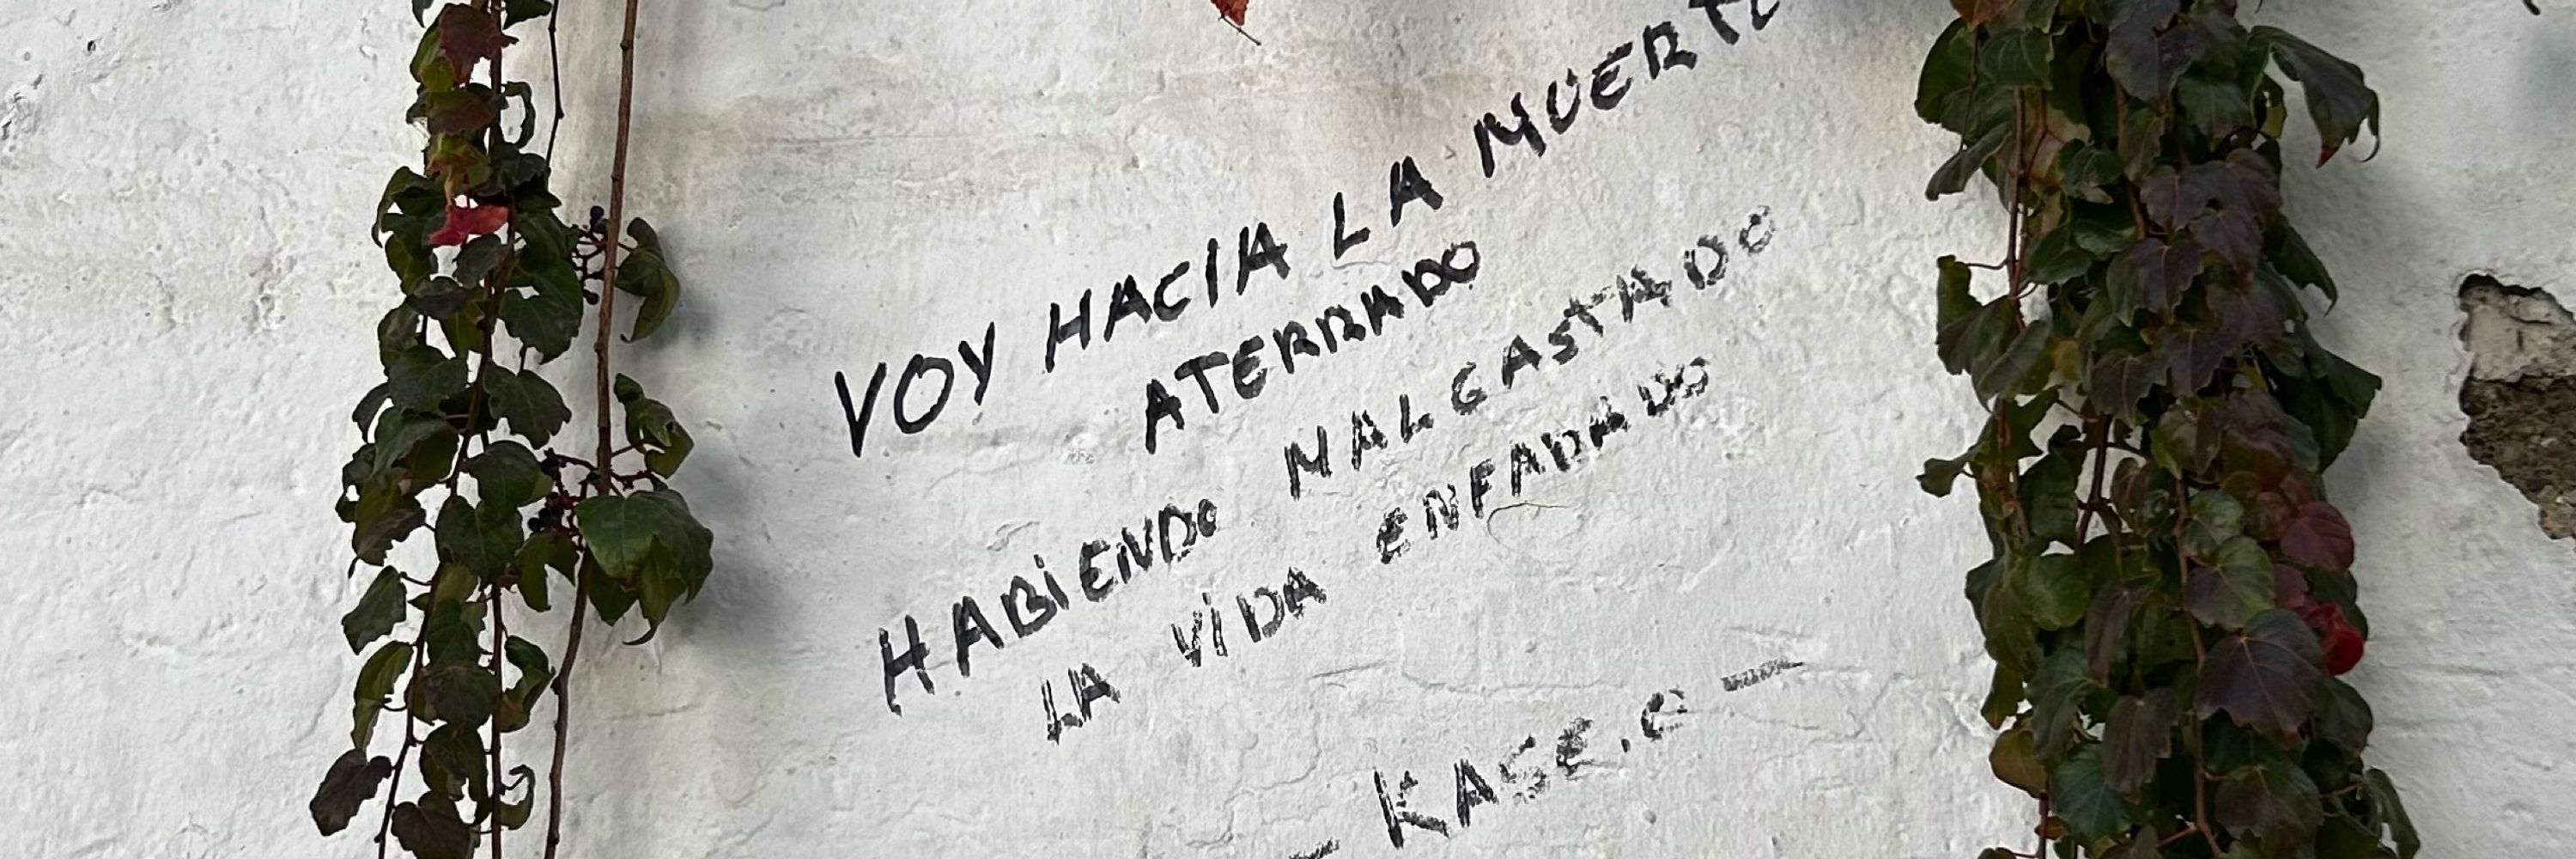 VOY HACIA LA MUERTE
ATERRADO
HABIENDO MALGASTADO
LA VIDA ENFADADO
- KASE.O -